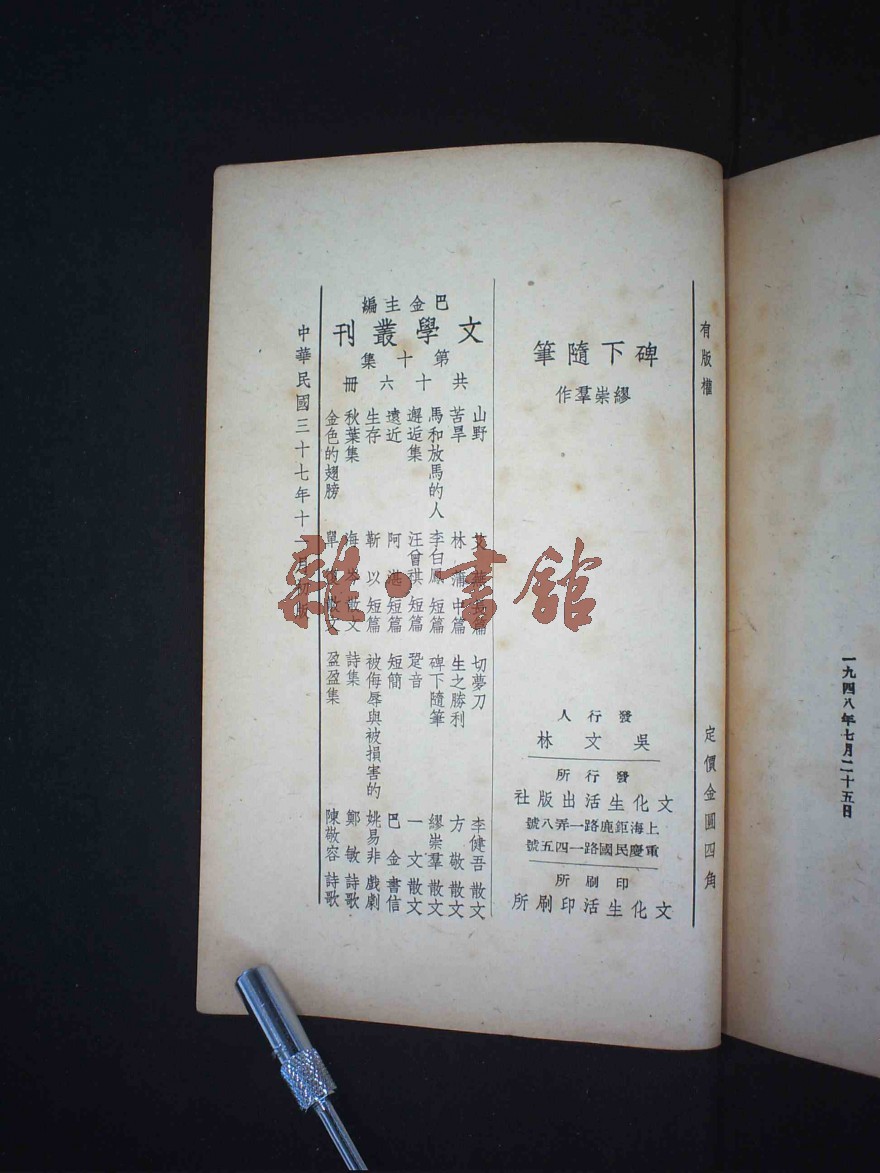 一九四八年七月二十五日
有版權 定價金圓四角
碑下隨筆
繆崇羣作
發行人
吳文林
發行所
文化生活出版社
上海鉅鹿路一弄八號
重慶民國路一四五號
印刷所
文化生活印刷所
巴金主編
文學叢刊
第十集
共十六冊
山野 艾蕪 長篇
苦旱 林蒲 中篇
馬和放馬的人 李白鳳 短篇
邂逅集 汪曾祺 短篇
遠近 阿湛 短篇
生存 靳以 短篇
秋葉集 海岑 散文
金色的翅膀 單 散文
切夢刀 李健吾 散文
生之勝利 方敬 散文
碑下隨筆 繆崇羣 散文
跫音 一文 散文
短簡 巴金 書信
被侮辱與被損害的 姚易非 戲劇
詩集 鄭敏 詩歌
盈盈集 陳敬容 詩歌
中華民國三十七年十 月初版
雜·書館